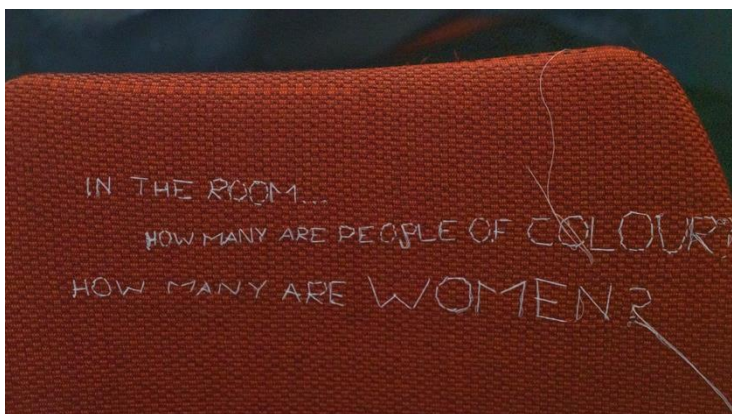 IN THE ROOM...
HOW MANY ARE PEOPLE OF COLOUR?
HOW MANY ARE WOMEN?